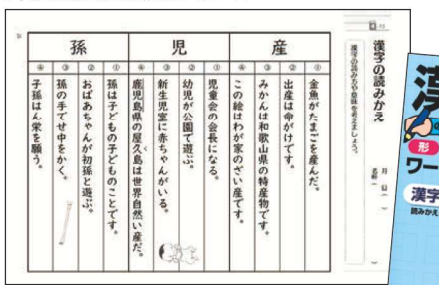 漢字の読みかえ
漢字の読み方や意味を考えましょう。
月 日
名前
産
① 金魚がたまごを産んだ。
② 出産は命がけです。
③ みかんは和歌山県の特産物です。
④ この絵はわが家のざい産です。
児
① 児童会の会長になる。
② 幼児が公園で遊ぶ。
③ 新生児室に赤ちゃんがいる。
④ 鹿児島県の屋久島は世界自然い産だ。
孫
① 孫は子どもの子どものことです。
② おばあちゃんが初孫と遊ぶ。
③ 孫の手でせ中をかく。
④ 子孫はん栄を願う。
漢
形
ワー
漢字
読みかえ